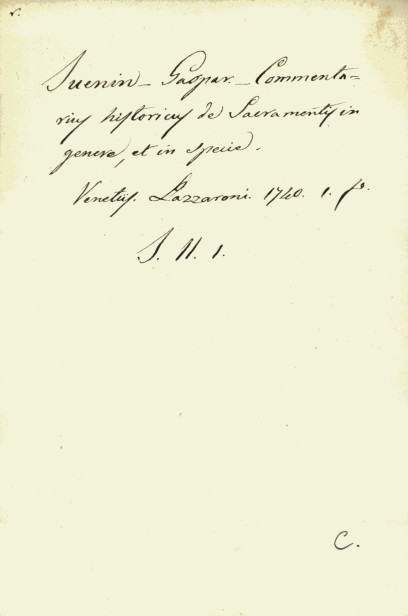 Juenin - Gaspar. - Commenta-
rius historicus de Sacramentis in
genere, et in specie.
Venetiis. Lazzaroni. 1740. 1. fo.
S. 11. 1.
C.